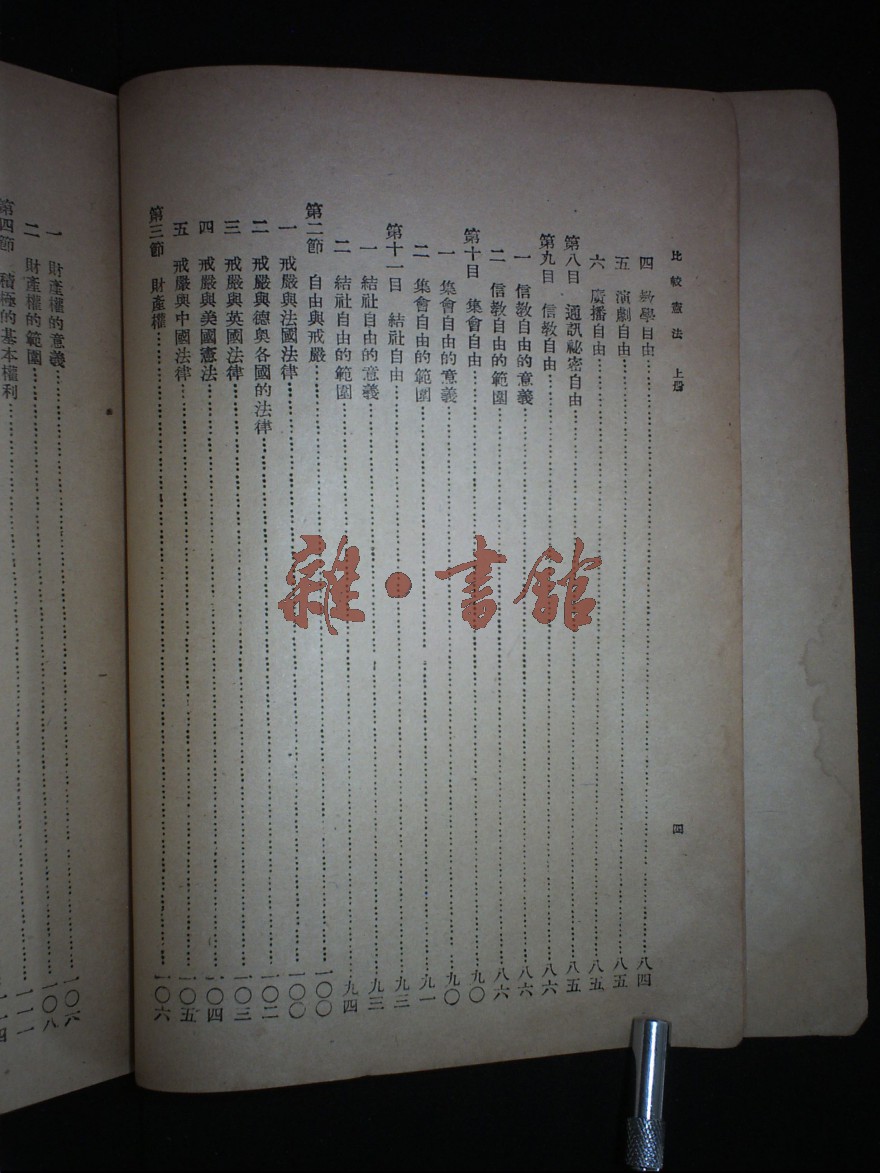 比較憲法 上册
四
四 教學自由……八四
五 演劇自由……八五
六 廣播自由……八五
第八目 通訊祕密自由……八五
第九目 信教自由……八六
一 信教自由的意義……八六
二 信教自由的範圍……八六
第十目 集會自由……九〇
一 集會自由的意義……九〇
二 集會自由的範圍……九一
第十一目 結社自由……九三
一 結社自由的意義……九三
二 結社自由的範圍……九四
第二節 自由與戒嚴……一〇〇
一 戒嚴與法國法律……一〇〇
二 戒嚴與德奧各國的法律……一〇二
三 戒嚴與英國法律……一〇三
四 戒嚴與美國憲法……一〇四
五 戒嚴與中國法律……一〇五
第三節 財產權……一〇六
一 財產權的意義……一〇六
二 財產權的範圍……一〇八
第四節 積極的基本權利……一一一
雜·書館